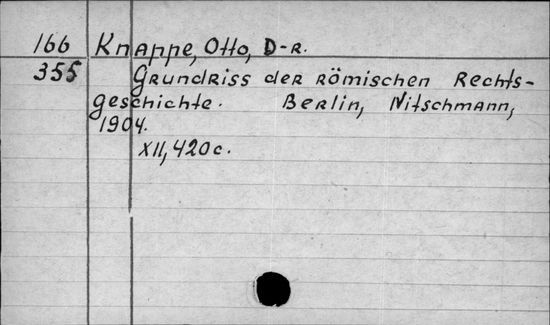 166 Knappe, Otto, D-r.
355 Grundriss der römischen Rechts-
geschichte. Berlin, Nitschmann,
1904.
XII, 420 c.